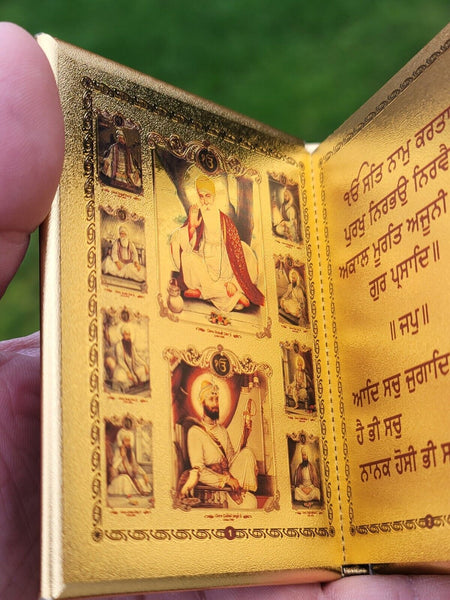 ੴ
ੴ
1
ੴ ਸਤਿ ਨਾਮੁ ਕਰਤਾ
ਪੁਰਖੁ ਨਿਰਭਉ ਨਿਰਵੈ
ਅਕਾਲ ਮੂਰਤਿ ਅਜੂਨੀ
ਗੁਰ ਪ੍ਰਸਾਦਿ॥
॥ ਜਪੁ॥
ਆਦਿ ਸਚੁ ਜੁਗਾਦਿ
ਹੈ ਭੀ ਸਚੁ
ਨਾਨਕ ਹੋਸੀ ਭੀ ਸ
2